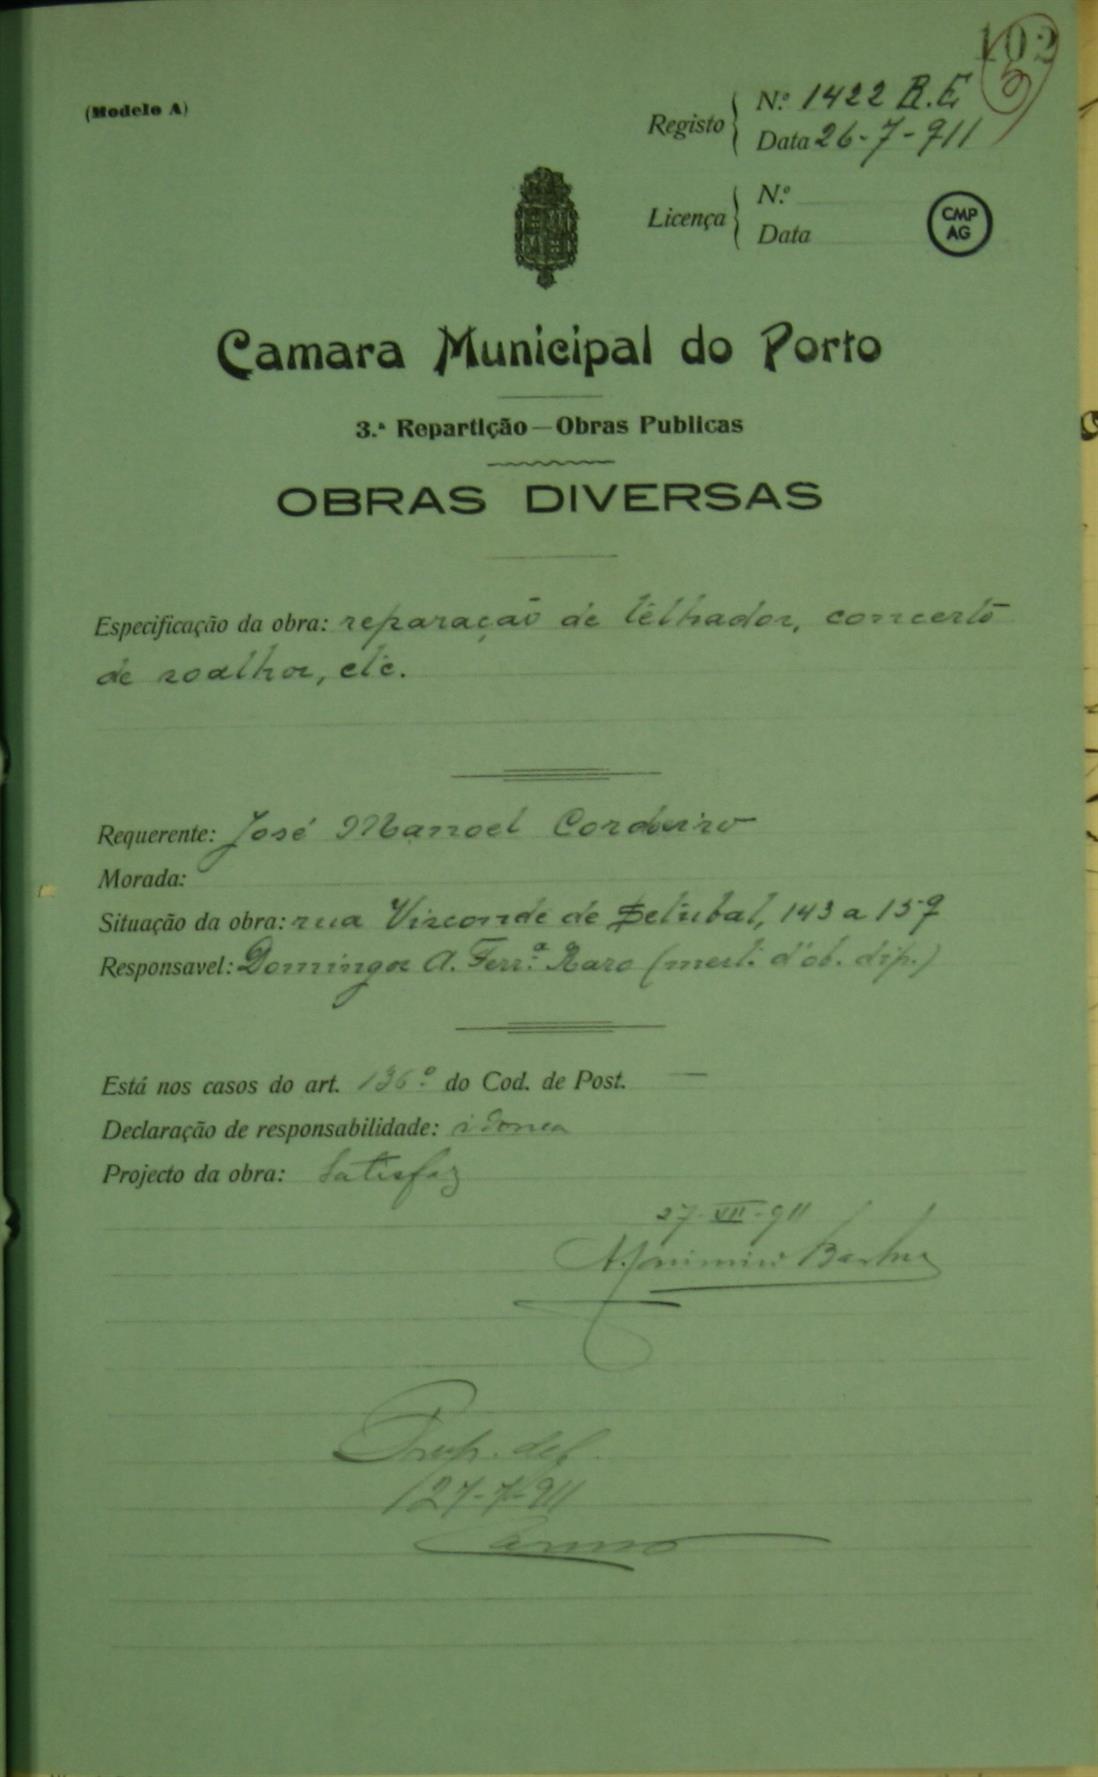 102
(Modelo A)
Registo
N.º 1422 R.E
Data 26-7-911
Licença
N.º
Data
CMP
AG
Camara Municipal do Porto
3.ª Repartição—Obras Publicas
OBRAS DIVERSAS
Especificação da obra: reparação de telhados, concerto
de soalhos, etc.
Requerente: José Manoel Cordeiro
Morada:
Situação da obra: rua Visconde de Setubal, 143 a 159
Responsavel: Domingos A. Ferr.ª Raro (mest. d'ob. dip.)
Está nos casos do art. 136.º do Cod. de Post. —
Declaração de responsabilidade: idonea
Projecto da obra: Satisfaz
27-VII-911
27-7-911